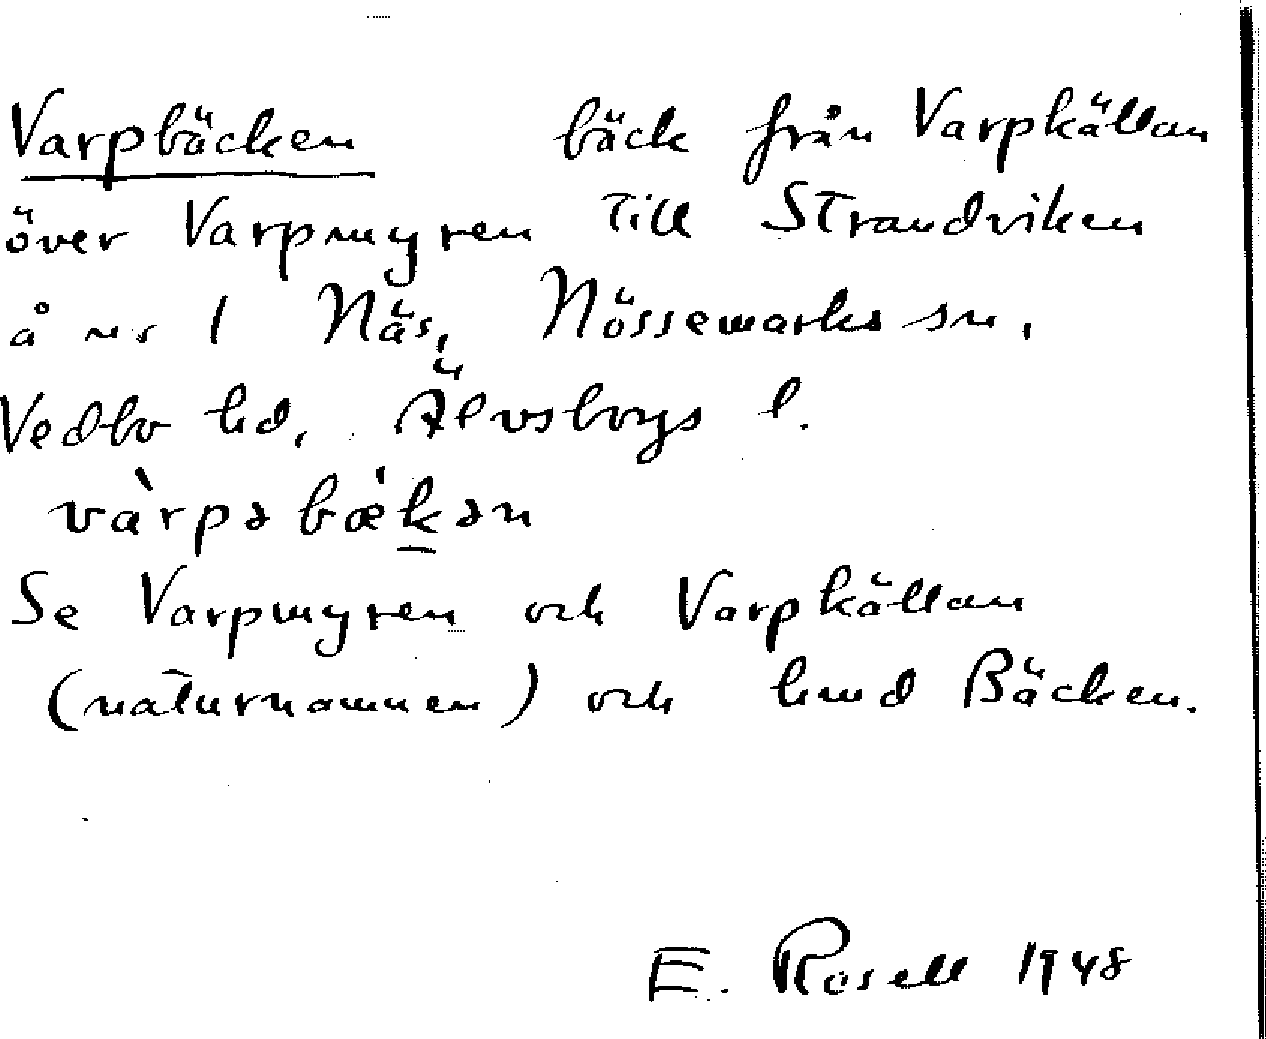 Varpbäcken bäck från Varpkällan
över Varpmyren till Strandviken
å nr 1 Näs, Nössemarks sn,
Vedbo hd, Älvsborgs l.
vàrpə bæ̀kən
Se Varpmyren och Varpkällan
(naturnamnen) och hmd Bäcken.
E. Rosell 1948